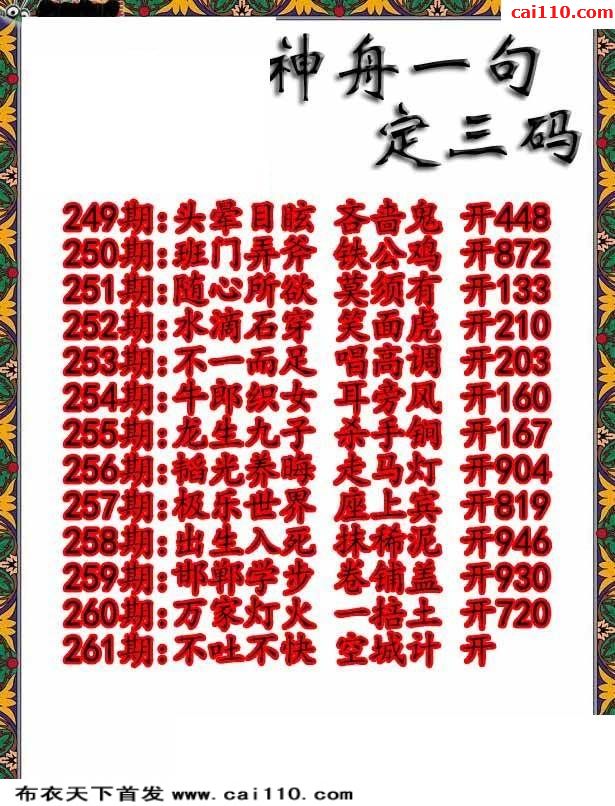 cai110.com
神舟一句
定三码
249期:头晕目眩 吝啬鬼 开448
250期:班门弄斧 铁公鸡 开872
251期:随心所欲 莫须有 开133
252期:水滴石穿 笑面虎 开210
253期:不一而足 唱高调 开203
254期:牛郎织女 耳旁风 开160
255期:龙生九子 杀手锏 开167
256期:韬光养晦 走马灯 开904
257期:极乐世界 座上宾 开819
258期:出生入死 抹稀泥 开946
259期:邯郸学步 卷铺盖 开930
260期:万家灯火 一掊土 开720
261期:不吐不快 空城计 开
布衣天下首发 www.cai110.com